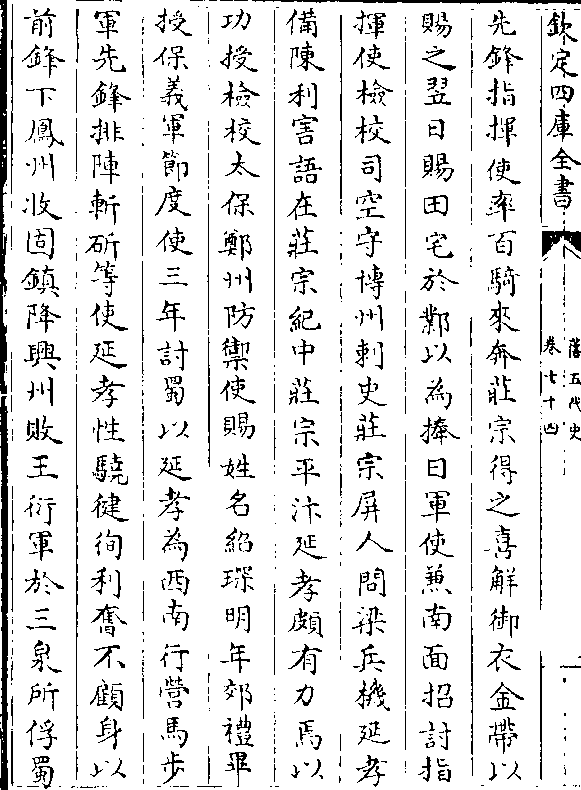 欽定四庫全書
舊五代史
卷七十四
先鋒指揮使率百騎來奔莊宗得之喜解御衣金帶以
賜之翌日賜田宅於鄴以為捧日軍使兼南面招討指
揮使檢校司空守博州刺史莊宗屏人問梁兵機延孝
備陳利害語在莊宗紀中莊宗平汴延孝頗有力焉以
功授檢校太保鄭州防禦使賜姓名紹琛明年郊禮畢
授保義軍節度使三年討蜀以延孝為西南行營馬步
軍先鋒排陣斬斫等使延孝性驍健徇利奮不顧身以
前鋒下鳳州收固鎮降興州敗王衍軍於三泉所俘蜀